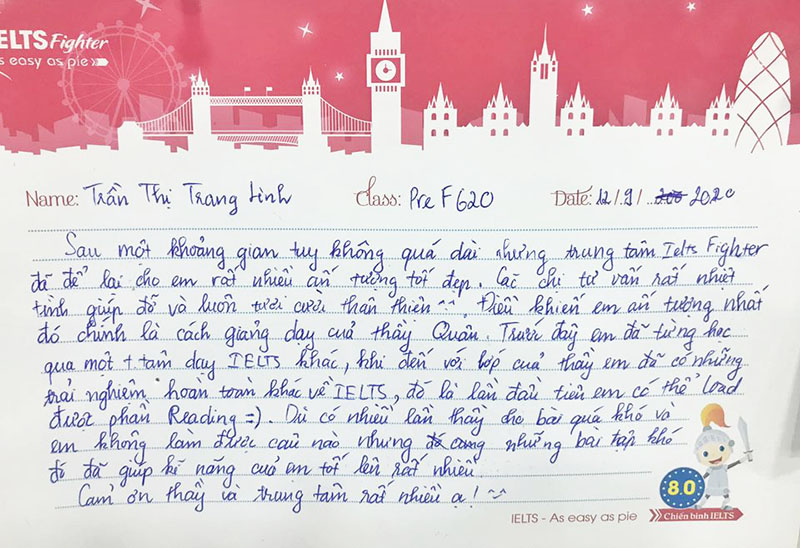 IELTS Fighter
As easy as pie
Name: Trần Thị Trang Linh Class: Pre F620 Date: 12/9/ 2020
Sau một khoảng gian tuy không quá dài nhưng trung tâm Ielts Fighter
đã để lại cho em rất nhiều ấn tượng tốt đẹp. Các chị tư vấn rất nhiệt
tình giúp đỡ và luôn tươi cười thân thiện ^^. Điều khiến em ấn tượng nhất
đó chính là cách giảng dạy của thầy Quân. Trước đây em đã từng học
qua một t.tâm dạy IELTS khác, khi đến với lớp của thầy em đã có những
trải nghiệm hoàn toàn khác về IELTS, đó là lần đầu tiên em có thể load
được phần Reading =). Dù có nhiều lần thầy cho bài quá khó và
em không làm được câu nào nhưng những bài tập khó
đó đã giúp kĩ năng của em tốt lên rất nhiều.
Cảm ơn thầy và trung tâm rất nhiều ạ! ^^
8.0
IELTS - As easy as pie Chiến binh IELTS